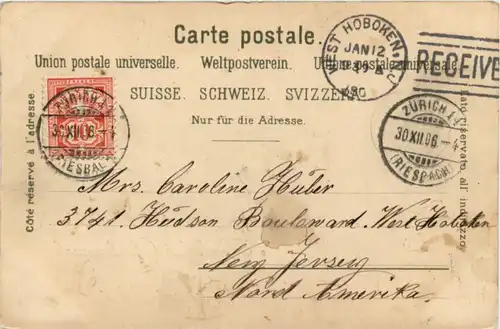 Carte postale.
WEST HOBOKEN, N.J.
JAN 12
RECEIVE
Union postale universelle. Weltpostverein. Unione postale universale.
SUISSE. SCHWEIZ. SVIZZERA.
Nur für die Adresse.
Côté réservé à l'adresse.
Lato riservato all' indirizzo.
ZÜRICH
30.XII.06.-4
(RIESBACH)
ZÜRICH
30.XII.06.-4
(RIESBACH)
Mrs. Caroline Huber
3741. Hudson Boulaward. West Hoboken
New Jersey
Nord Amerika.